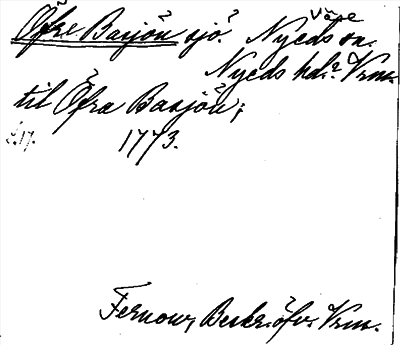 Väse
Öfre Barsjön sjö. Nyeds sn.
Nyeds hd. Vrm.
til Öfra Barsjön;
s. 17. 1773.
Fernow, Beskr. öfv. Vrm.